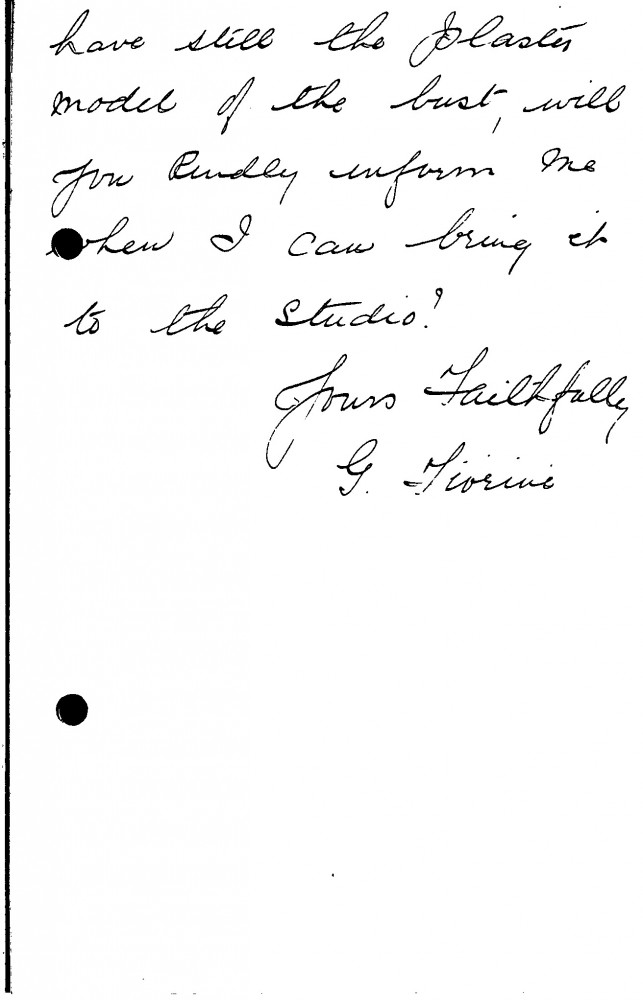 have still the plaster
model of the bust, will
you kindly inform me
when I can bring it
to the studio?
Yours Faithfully
G. Fiorini